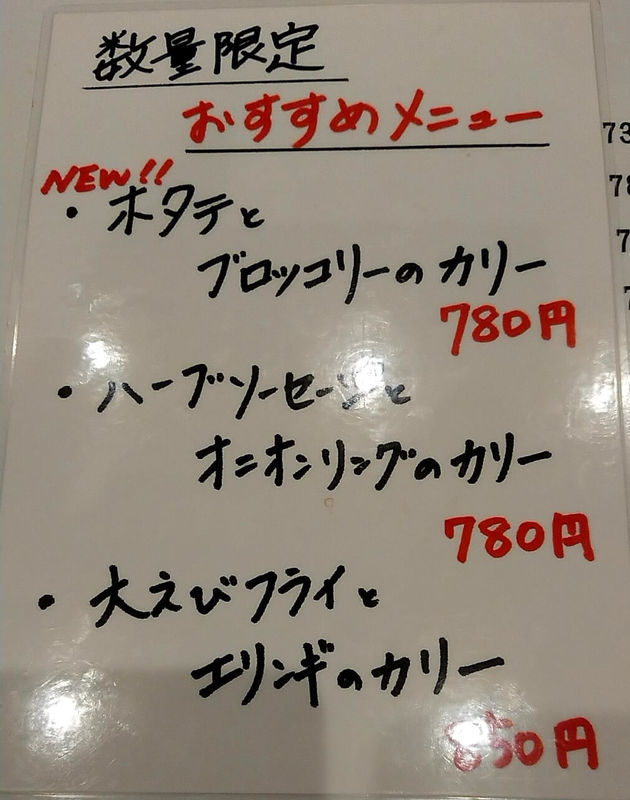 数量限定
おすすめメニュー
NEW!!
・ホタテと
ブロッコリーのカリー
780円
・ハーブソーセージと
オニオンリングのカリー
780円
・大えびフライと
エリンギのカリー
850円